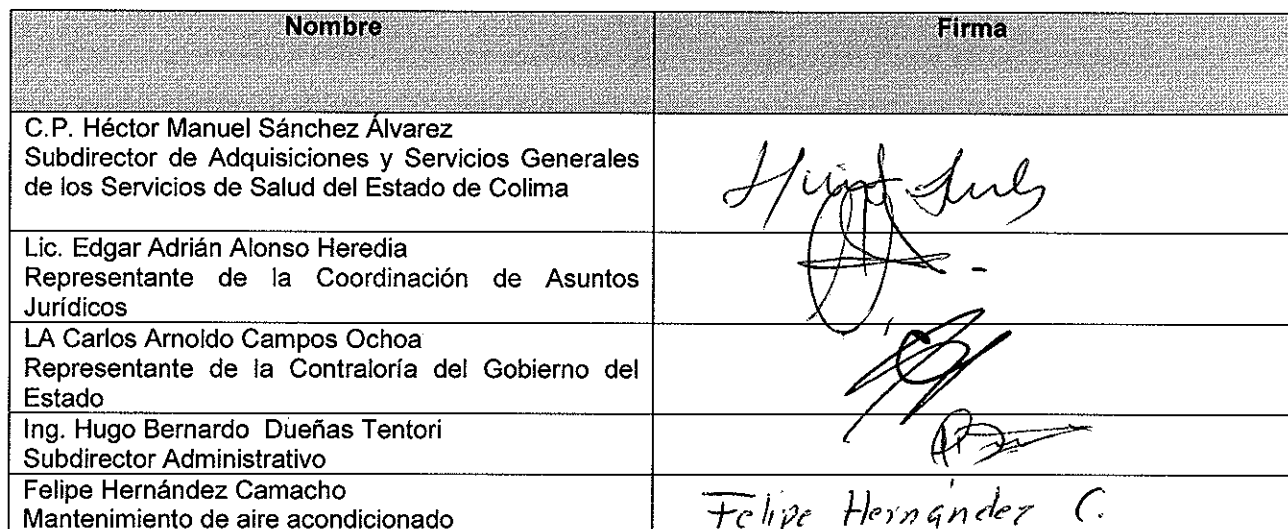 Nombre
Firma
C.P. Héctor Manuel Sánchez Álvarez
Subdirector de Adquisiciones y Servicios Generales
de los Servicios de Salud del Estado de Colima
Lic. Edgar Adrián Alonso Heredia
Representante de la Coordinación de Asuntos
Jurídicos
LA Carlos Arnoldo Campos Ochoa
Representante de la Contraloría del Gobierno del
Estado
Ing. Hugo Bernardo Dueñas Tentori
Subdirector Administrativo
Felipe Hernández Camacho
Mantenimiento de aire acondicionado
Felipe Hernández C.